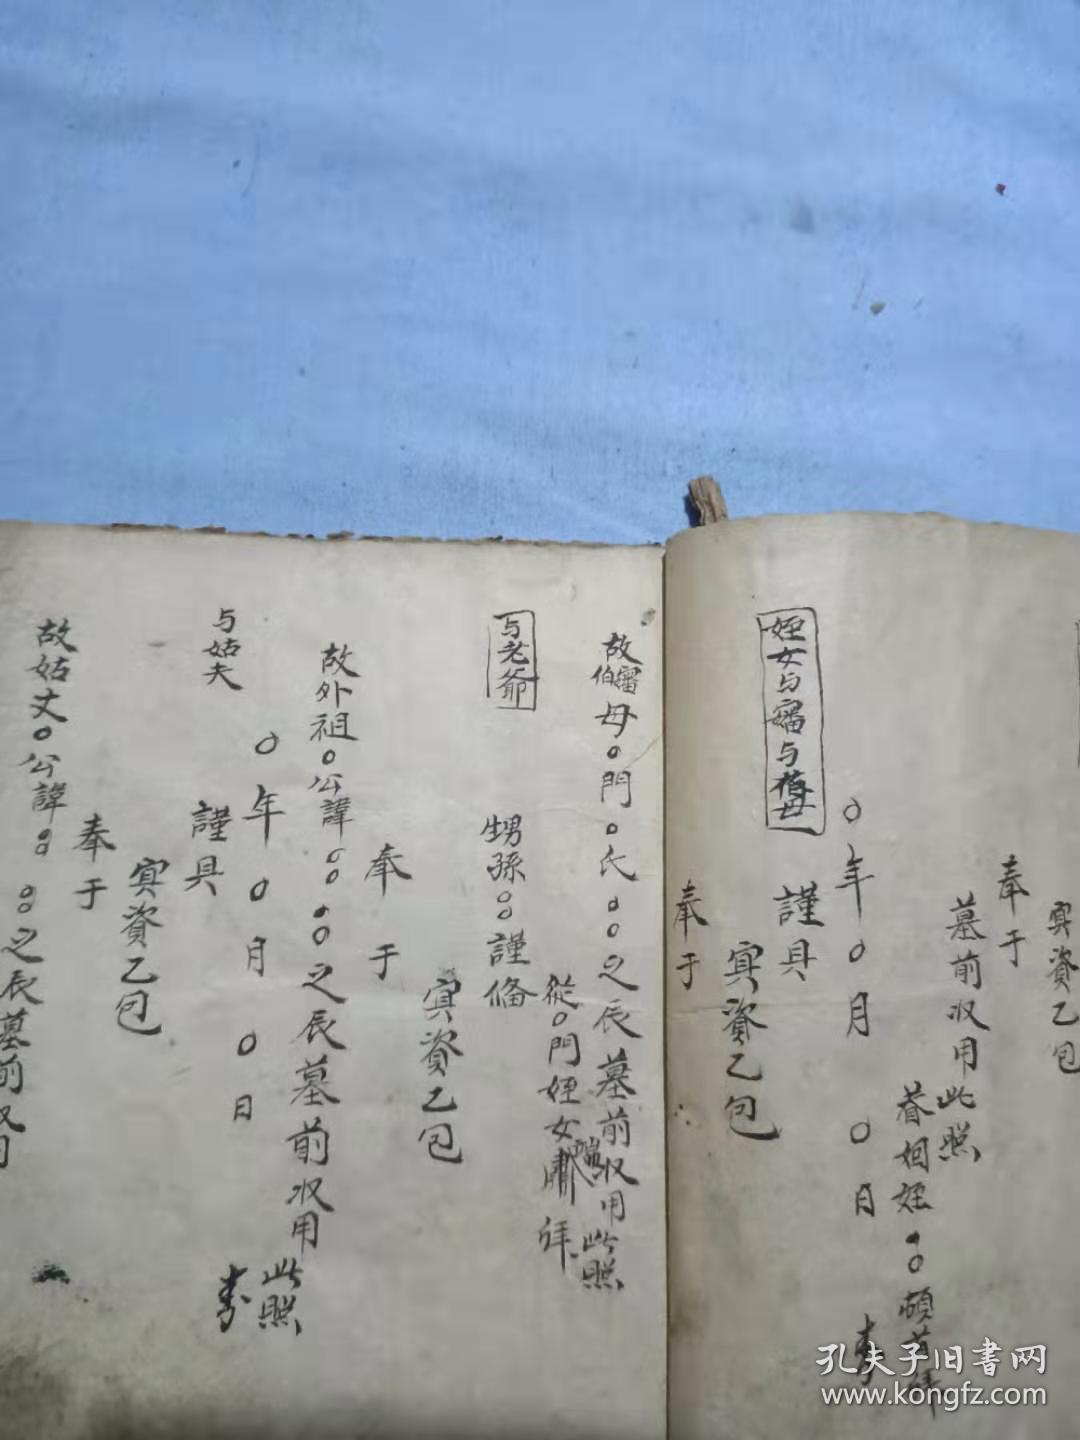 冥資乙包
奉于
墓前収用此照
眷姻姪〇頓首拜
〇年〇月〇日
姪女与嬸与伯母
謹具
冥資乙包
奉于
故伯嬸母〇門〇氏〇〇之辰墓前収用此照
從〇門姪女 拜
与老爺
甥孫〇〇謹俻
冥資乙包
奉于
故外祖〇公諱〇〇 〇〇之辰墓前収用此照
〇年〇月〇日
与姑夫
謹具
冥資乙包
奉于
故姑丈〇公諱〇〇 〇〇之辰墓前収用
孔夫子旧书网
www.kongfz.com